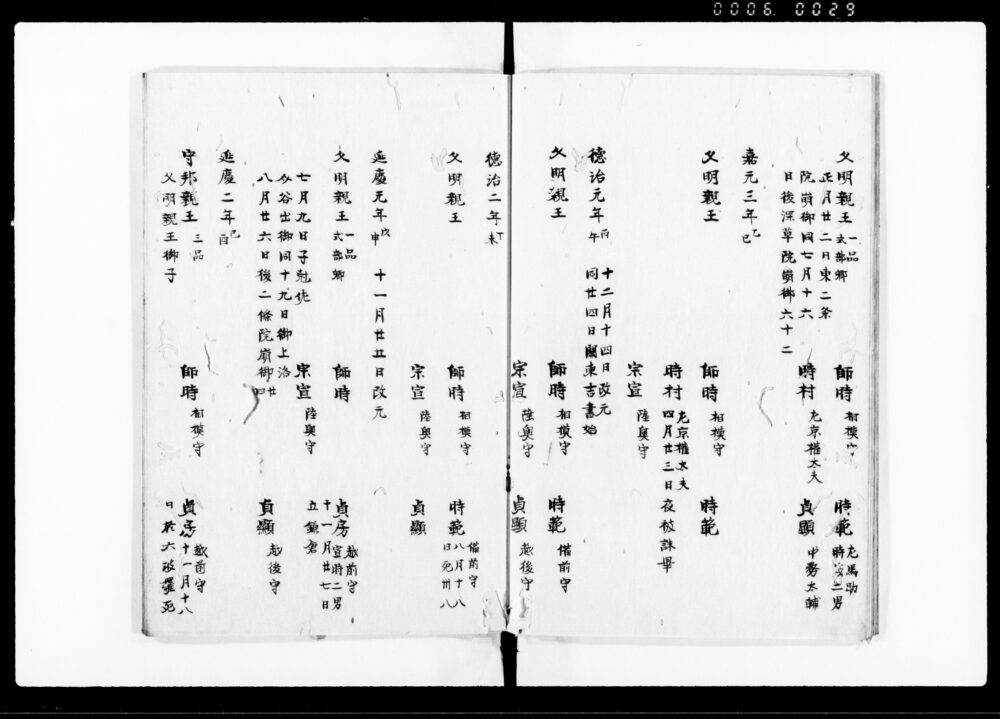 0006. 0029
久明親王 一品
式部卿
正月廿二日東二条
院崩御同七月十六
日後深草院崩御六十二
師時 相模守
時村 左京権大夫
時範 左馬助
時茂二男
貞顕 中務大輔
嘉元三年 乙
巳
久明親王
師時 相模守
時村 左京権大夫
四月廿三日夜被誅畢
宗宣 陸奥守
時範
徳治元年 丙
午
十二月十四日改元
同廿四日関東吉書始
久明親王
師時 相模守
宗宣 陸奥守
時範 備前守
貞顕 越後守
徳治二年 丁
未
久明親王
師時 相模守
宗宣 陸奥守
時範 備前守
八月十八
日死卅八
貞顕
延慶元年 戊
申
十一月廿五日改元
久明親王 一品
式部卿
七月九日子剋佐
介谷出御同十九日御上洛
八月廿六日後二條院崩御廿
四
師時
宗宣 陸奥守
貞房 越前守
宣時二男
十一月廿七日
立鎌倉
貞顕 越後守
延慶二年 己
酉
守邦親王 三品
久明親王御子
師時 相模守
貞房 越前守
十一月十八
日於六波羅死